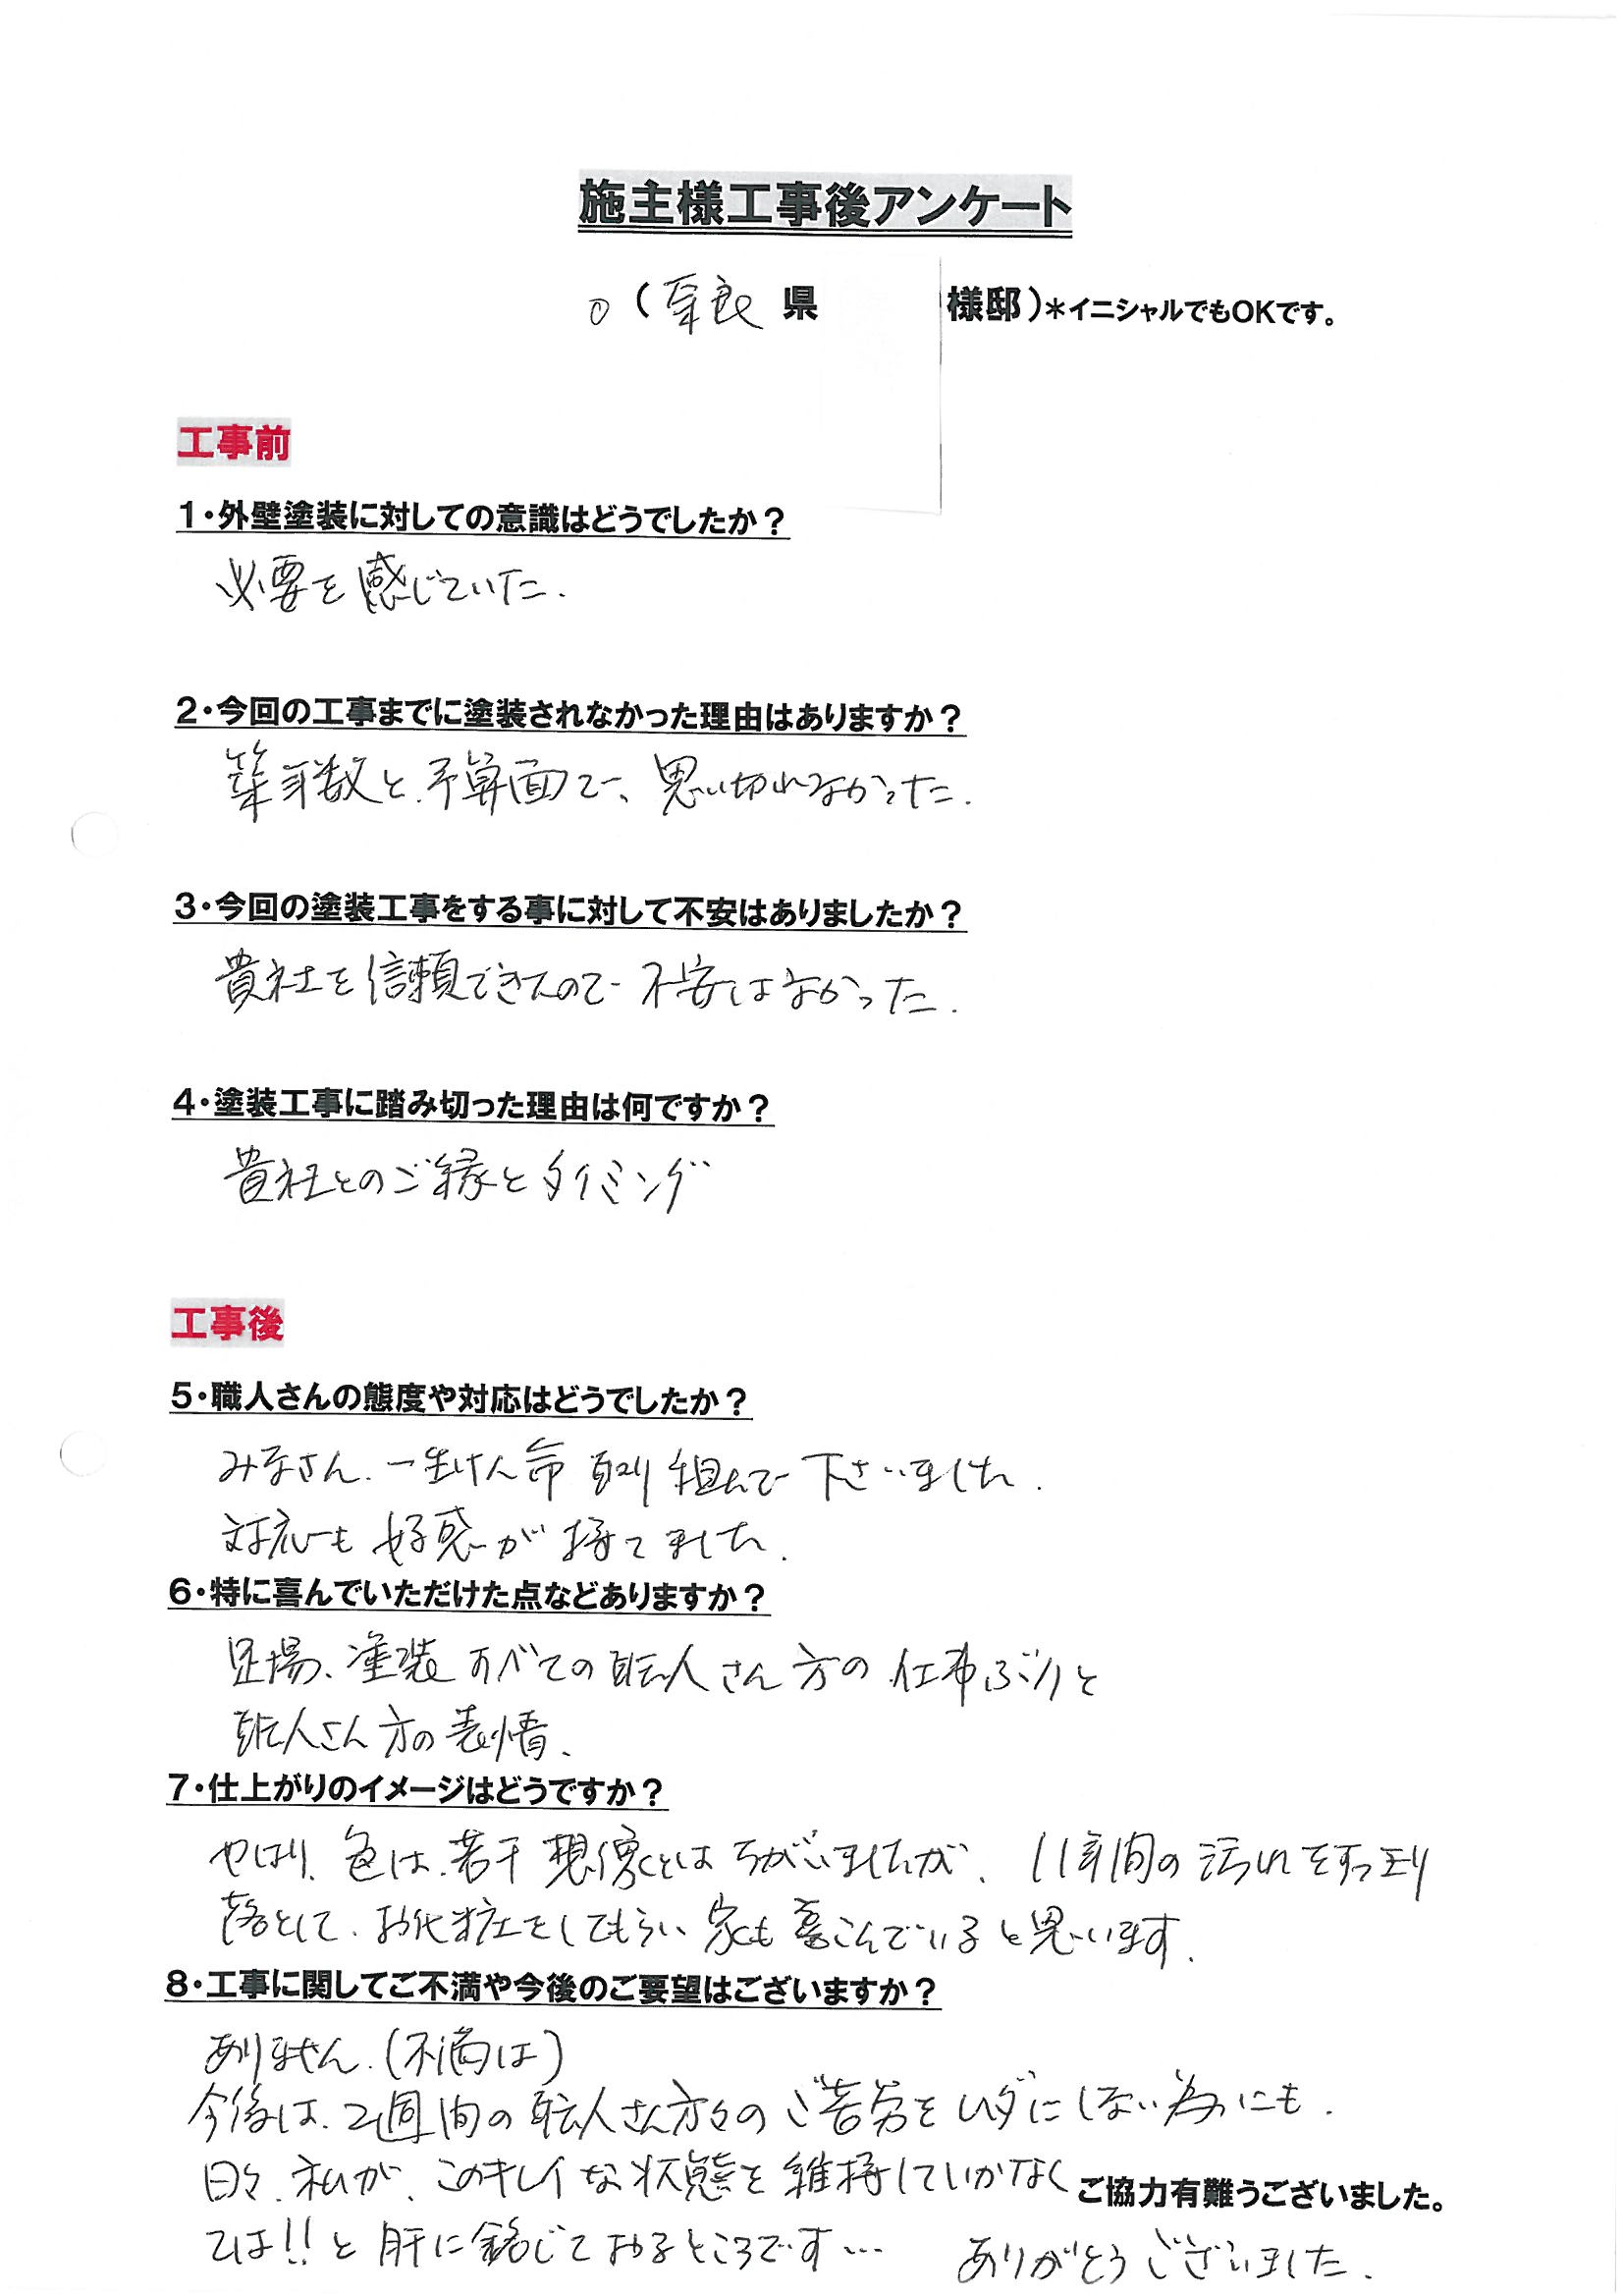 施主様工事後アンケート
(奈良県 様邸)*イニシャルでもOKです。
工事前
1・外壁塗装に対しての意識はどうでしたか？
必要を感じていた.
2・今回の工事までに塗装されなかった理由はありますか？
築年数と.予算面で、思い切れなかった.
3・今回の塗装工事をする事に対して不安はありましたか？
貴社を信頼できたので不安はなかった.
4・塗装工事に踏み切った理由は何ですか？
貴社とのご縁とタイミング
工事後
5・職人さんの態度や対応はどうでしたか？
みなさん、一生けん命取り組んで下さいました.
対応も好感が持てました.
6・特に喜んでいただけた点などありますか？
足場、塗装すべての職人さん方の仕事ぶりと
職人さん方の表情、
7・仕上がりのイメージはどうですか？
やはり、色は、若干想像とはちがいましたが、11年間の汚れをすっきり
落として、お化粧をしてもらい家も喜こんでいると思います.
8・工事に関してご不満や今後のご要望はございますか？
ありません.(不満は)
今後は、2週間の職人さん方々のご苦労をムダにしない為にも.
日々、私が、このキレイな状態を維持していかなく
ご協力有難うございました。
ては!!と肝に銘じておるところです…
ありがとうございました.